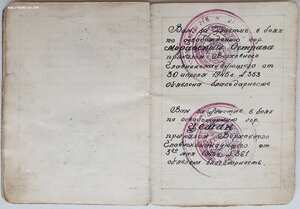 Вам за участие в боях
по освобождению гор.
Моравская Острава
приказом Верховного
Главнокомандующего от
30 апреля 1945 г. № 353
объявлена благодарность
Вам за участие в боях
по освобождению гор.
приказом Верховного
Главнокомандующего от
3го мая 1945 г. № 361
объявлена благодарность